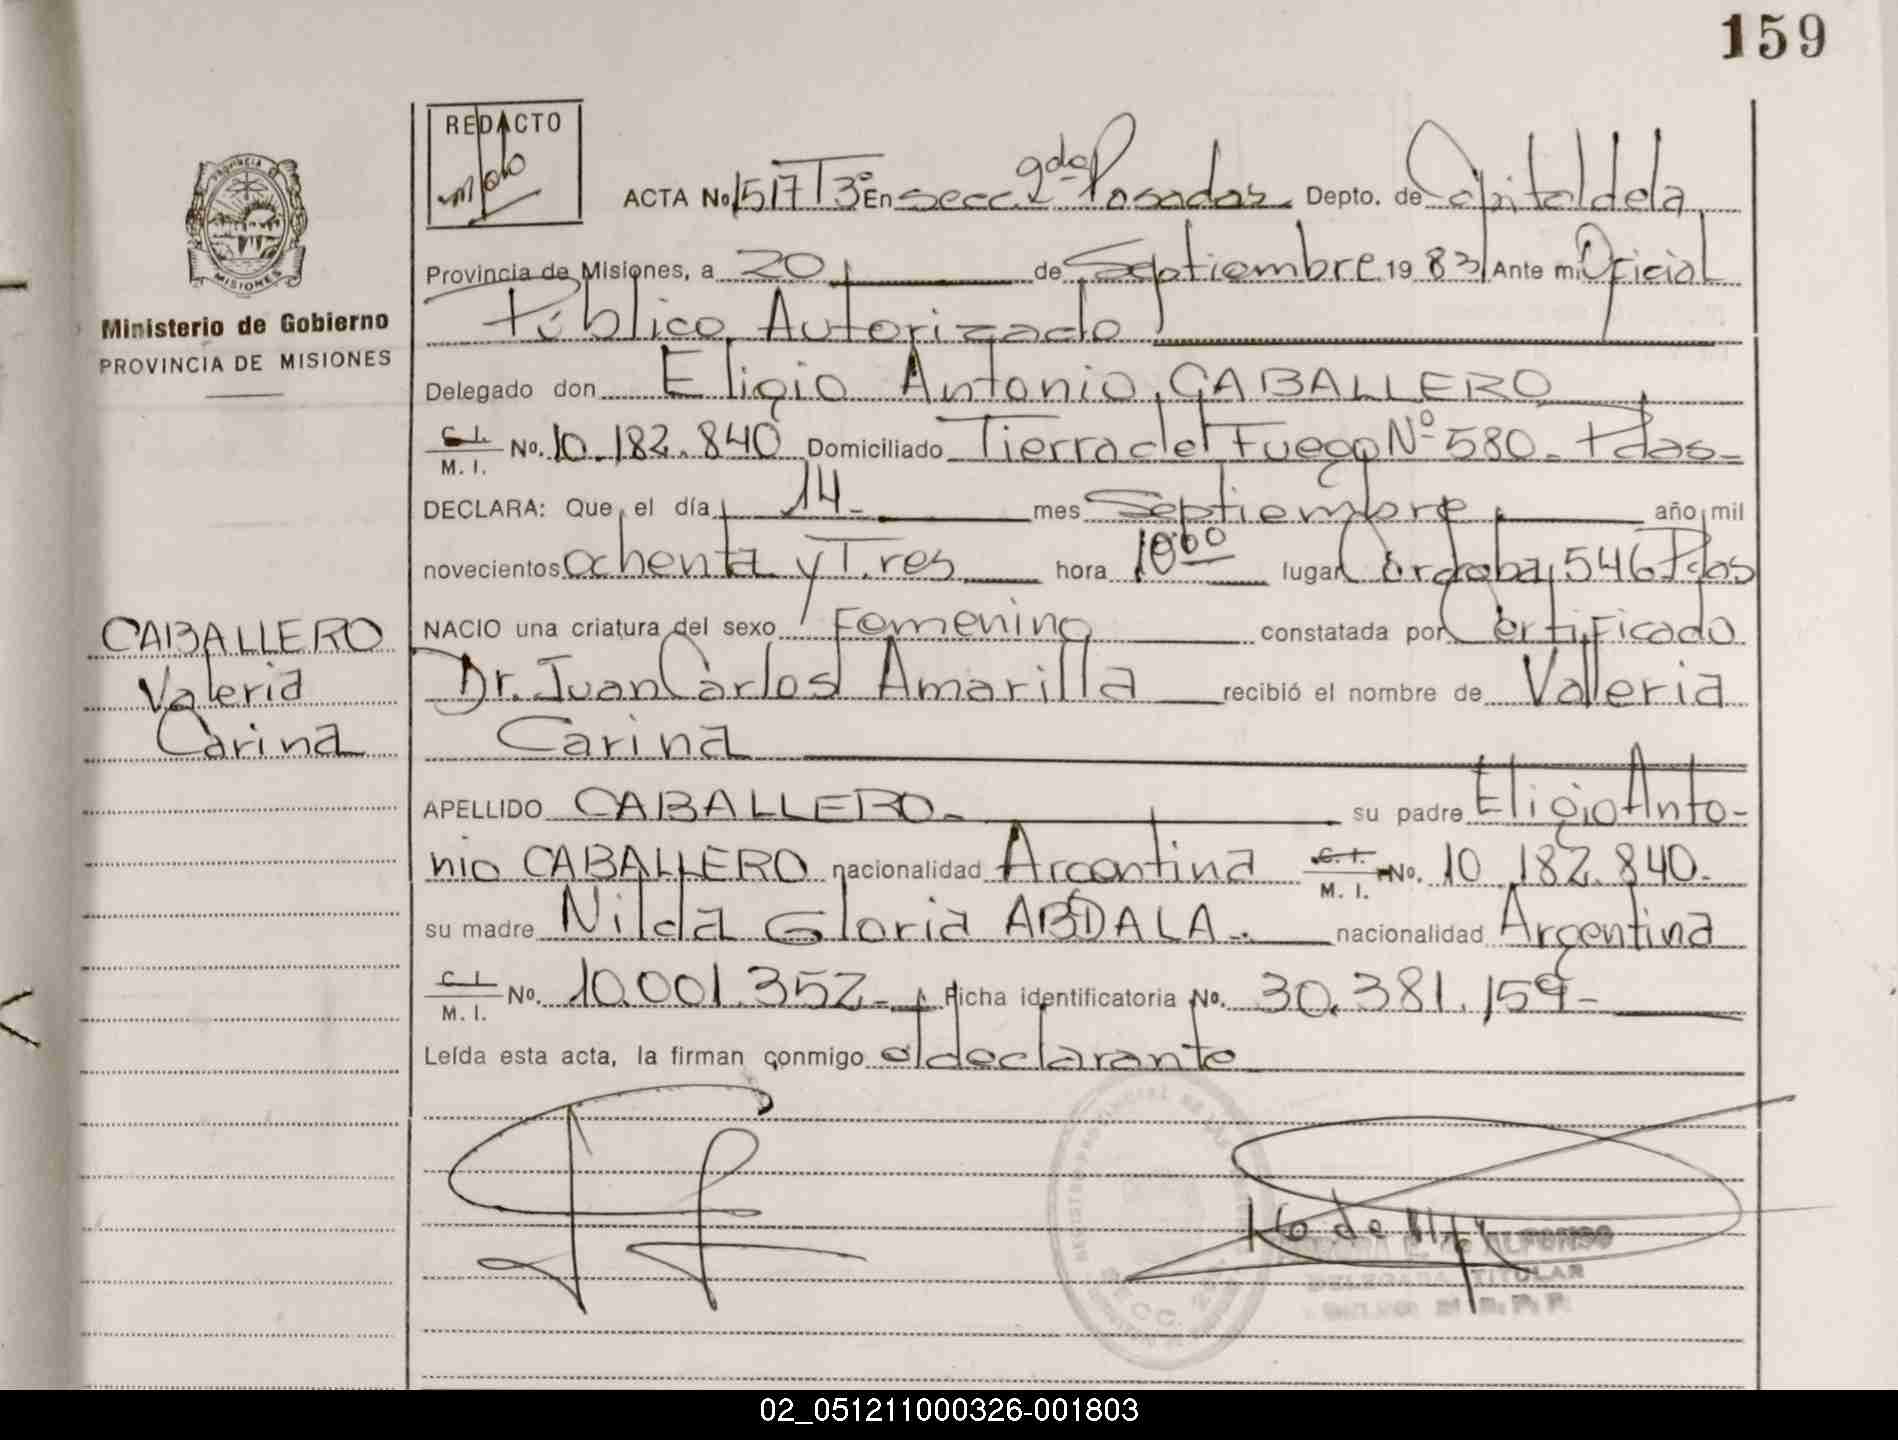 159
REDACTO
ACTA No 1517 T 3º En secc. 2da Posadas. Depto. de Capital de la
Provincia de Misiones, a 20 de Septiembre 19 83 Ante mi Oficial
Público Autorizado
Delegado don Eligio Antonio CABALLERO
C.I. M. I. No. 10.182.840 Domiciliado Tierra del Fuego Nº 580 - Pdas-
DECLARA: Que el día 14- mes Septiembre año mil
novecientos ochenta y Tres hora 10 00 lugar Córdoba 546 Pdas
NACIO una criatura del sexo Femenino constatada por Certificado
Dr. Juan Carlos Amarilla recibió el nombre de Valeria
Carina
APELLIDO CABALLERO.- su padre Eligio Anto-
nio CABALLERO nacionalidad Argentina C. I. M. I. No. 10.182.840.
su madre Nilda Gloria ABDALA.- nacionalidad Argentina
C. I. M. I. No. 10.001.352- Ficha identificatoria No. 30.381.159-
Leída esta acta, la firman conmigo el declarante
PROVINCIA DE
MISIONES
Ministerio de Gobierno
PROVINCIA DE MISIONES
CABALLERO
Valeria
Carina
ALFONSO
DELEGADA TITULAR
02_051211000326-001803